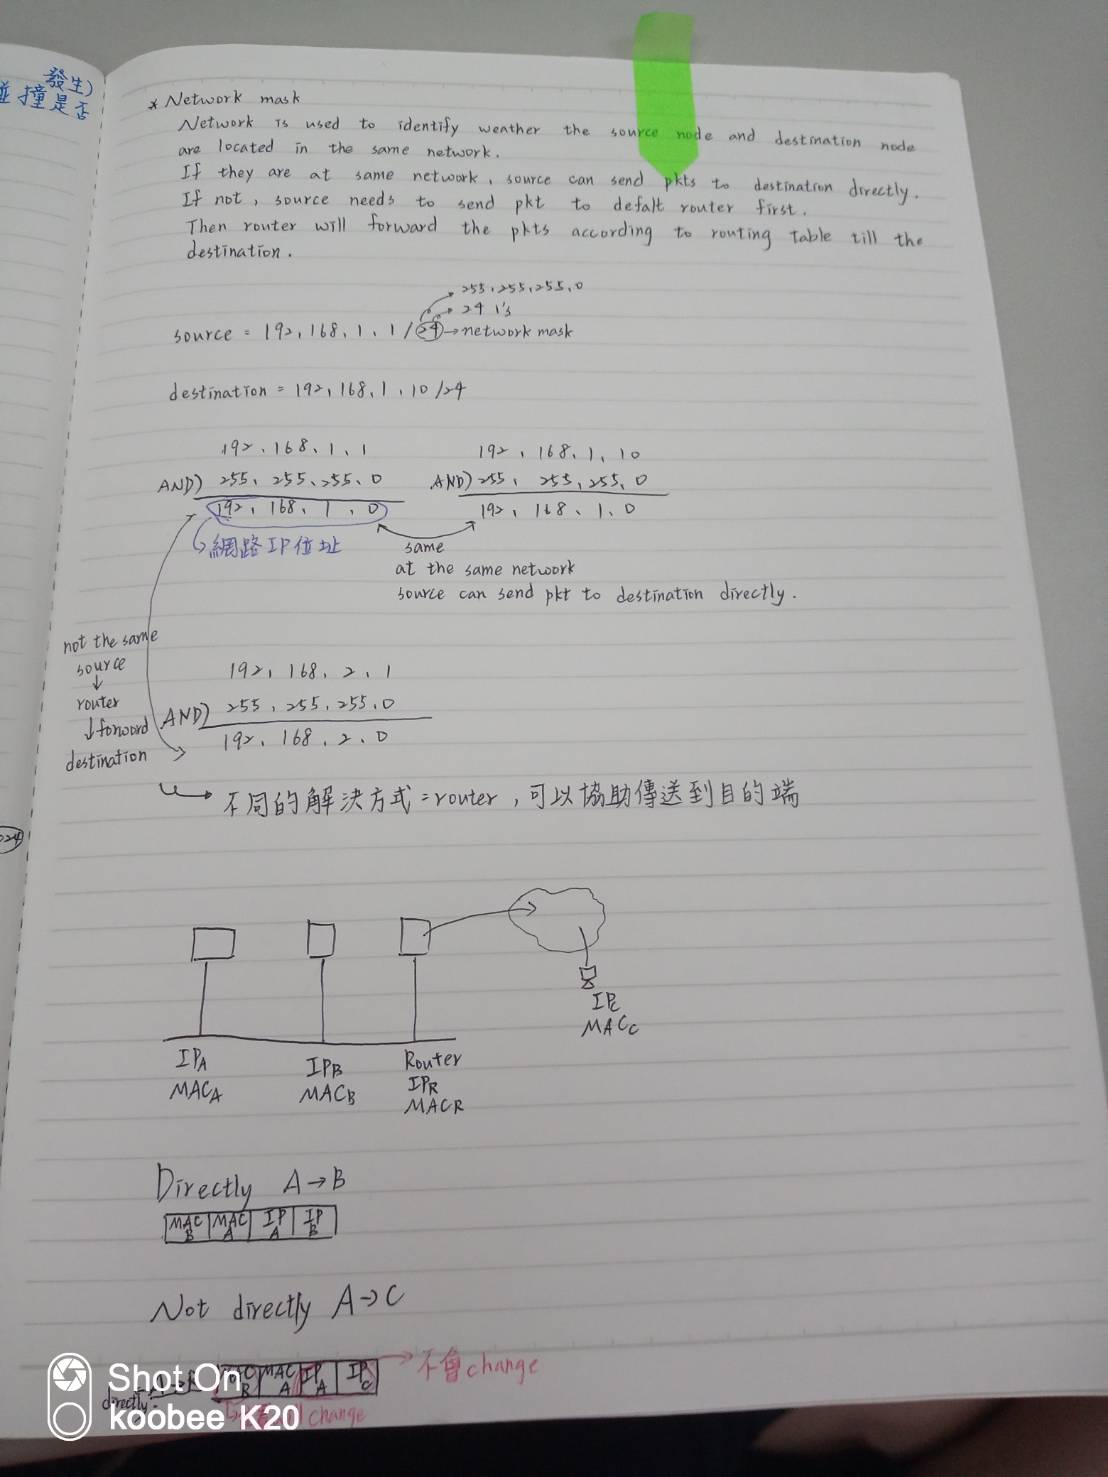 發生)
碰撞是否
* Network mask
Network is used to identify weather the source node and destination node
are located in the same network.
If they are at same network, source can send pkts to destination directly.
If not, source needs to send pkt to defalt router first.
Then router will forward the pkts according to routing table till the
destination.
255.255.255.0
24 1's
source = 192.168.1.1/24 → network mask
destination = 192.168.1.10/24
192.168.1.1
AND) 255.255.255.0
192.168.1.0
網路IP位址
192.168.1.10
AND) 255.255.255.0
192.168.1.0
same
at the same network
source can send pkt to destination directly.
not the same
source
↓
router
↓ forword
destination
192.168.2.1
AND) 255.255.255.0
192.168.2.0
不同的解決方式=router,可以協助傳送到目的端
IPA
MACA
IPB
MACB
Router
IPR
MACR
IPC
MACC
Directly A→B
MAC B | MAC A | IP A | IP B
Not directly A→C
directly:
MAC A | IP A | IP C
→ 不會change
change
Shot On
koobee K20